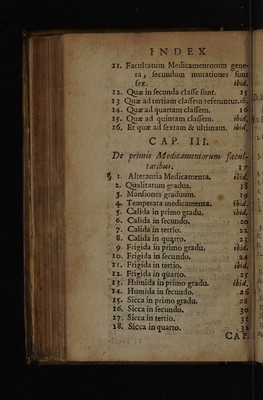 INDEX
11. Facultatum Medicamentorum gene-
ra, secundum mutationes sunt
sex. ibid.
12. Quæ in secunda classe sunt. 15
13 Quæ ad tertiam classem referuntur. ib.
14. Quæ ad quartam classem. 16
15. Quæ ad quintam classem. ibid.
16. Et quæ ad sextam & ultimam. ibid.
CAP. III.
De primis Medicamentorum facul-
tatibus. 17
§ 1. Alterantia Medicamenta. ibid.
2. Qualitatum gradus. 18
3. Mansiones graduum. 19
4. Temperata medicamenta. ibid.
5. Calida in primo gradu. ibid.
6. Calida in secundo. 20
7. Calida in tertio. 22
8. Calida in quarto. 23
9. Frigida in primo gradu. ibid.
10. Frigida in secundo. 24
11. Frigida in tertio. ibid.
12. Frigida in quarto. 25
13. Humida in primo gradu. ibid.
14. Humida in secundo. 26
15. Sicca in primo gradu. 28
16. Sicca in secundo. 30
17. Sicca in tertio. 31
18. Sicca in quarto. 32
CAP.